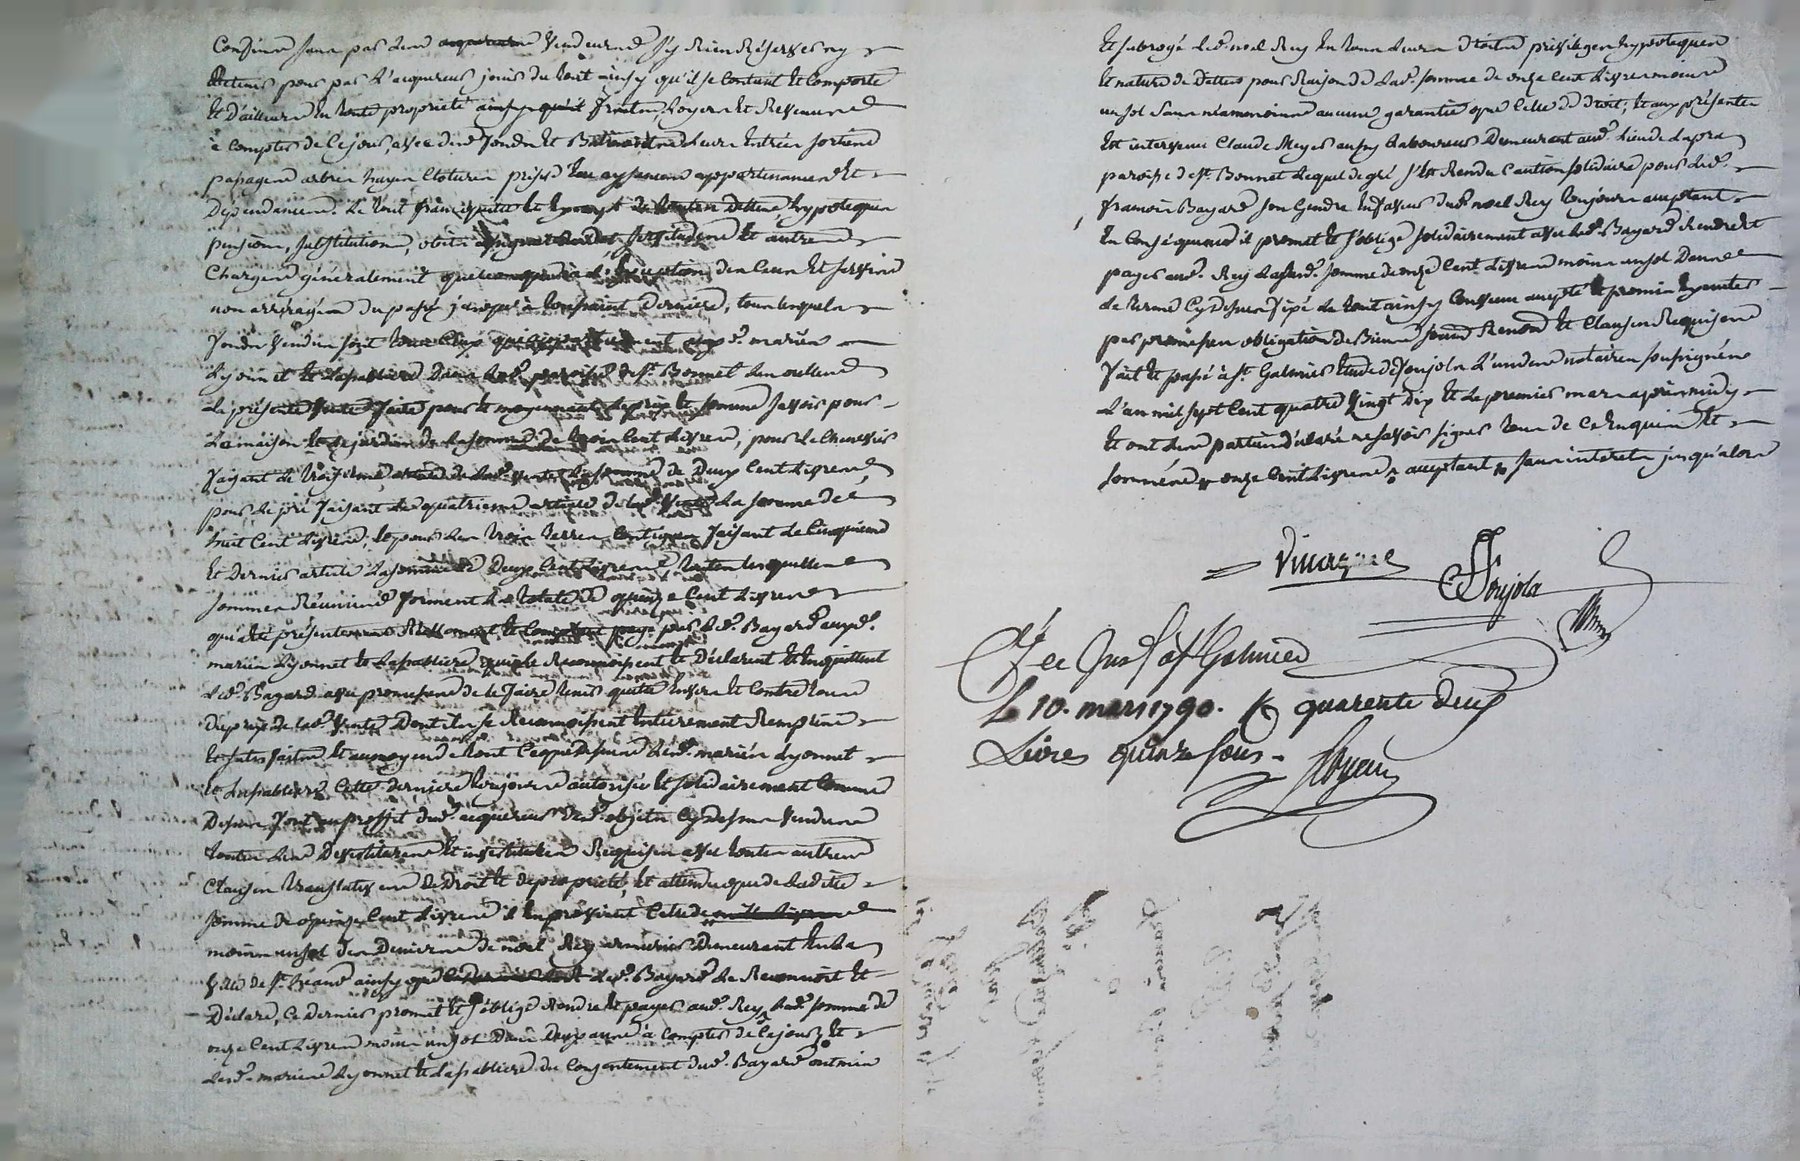 Confiner sans par les acquereurs vendeurs s'y rien réserver ny
retenir pour par l'acquereur jouir du tout ainsy qu'il se contient et comporte
et d'ailleurs en toute propriété fruits, loyers et revenus
à compter de ce jour, avec des fonds et Batiments leurs entrées sorties
passages arbres hayes clotures prises eau aysances appartenances et
Dependances. Le tout franc quitte et exempt de toutes dettes, hypoteques
pensions, substitutions, servitudes et autres
Charges généralement quelconques à l'exception des cens et servis
non arreragés du passé jusqu'à toussaint derniere, tous lesquels
fonds vendus sont aux d. mariés
Lyonnet et Lapabliere dans lad. paroisse de St. Bonnet les oulles
La présente vente faite pour et moyennant le prix et somme savoir pour
La maison et le jardin de la somme de trois Cent Livres, pour le Chenevier
faisant le troisieme article de lad. vente la somme de Deux Cent Livres,
pour le pré faisant le quatrieme article de lad. vente La somme de
huit Cent Livres, et pour les trois terres contigues faisant le Cinquieme
et Dernier article la somme de Deux Cent Livres toutes lesquelles
sommes Réunies forment le total de quinze Cent Livres
qu'a été présentement Réellement et Comptant payé par led. Bayard auxd.
mariés Lyonnet et Lapabliere qui le Reconnoissent et Déclarent et en quittent
led. Bayard avec promesse de le faire tenir quitte envers et Contre tous
Du prix de lad. vente Dont ils se Reconnoissent entierement Remplis
et satisfaits et au moyen de tout Ceque Dessus lesd. mariés Lyonnet
et Lapabliere Cette derniere toujours autorisée et solidairement Comme
Dessus font au proffit dud. acquereur desd. objets Cy Dessus vendus
toutes les Devestitures et investitures Requises avec toutes autres
Clauses translatives de Droit et de propriété, et attendu que de ladite
somme de quinze Cent Livres il en provient Celle de mille Livres
moins un sol des Deniers de noel Rey armurier Demeurant en la
ville de St. héand ainsy que led. Bayard Le Reconnoit et
Déclare, Ce Dernier promet et s'oblige Rendre et payer aud. Rey lad. somme de
onze Cent Livres moins un sol Dans Deux années à Compter de Ce jour, et
lesd. mariés Lyonnet et Lapabliere du Consentement dud. Bayard ont mis
et subrogé led. noel Rey en tous leurs Droits privileges hypoteques
et nature de Dettes pour Raison de lad. somme de onze Cent Livres moins
un sol sans néanmoins aucune garantie que Celle de droit, et aux présentes
est intervenu Claude Meyer aussy Laboureur Demeurant aud. lieu de Lapra
paroisse de St. Bonnet Lequel de gré s'est Rendu Caution solidaire pour led.
françois Bayard son Gendre en faveur dud. noel Rey toujours acceptant
En Conséquence il promet et s'oblige solidairement avec led. Bayard Rendre et
payer aud. Rey Lasusd. somme de onze Cent Livres moins un sol Dans le
terme Cy Dessus fixé le tout ainsy Convenu accepté et promis executer
par promesses obligation de Biens soumd Renond et Clauses Requises
fait et passé à St. Galmier Etude de Ponjola L'un des notaires soussignés
L'an mil sept Cent quatre vingt Dix et Le premier mars après midy
et ont les parties déclaré ne savoir signer tous de Ce Enquis et
sommés onze Cent Livres acceptant sans interets jusqu'alors
Ponjola
Le 10. mars 1790. quarente deux
Livres quinze sous.